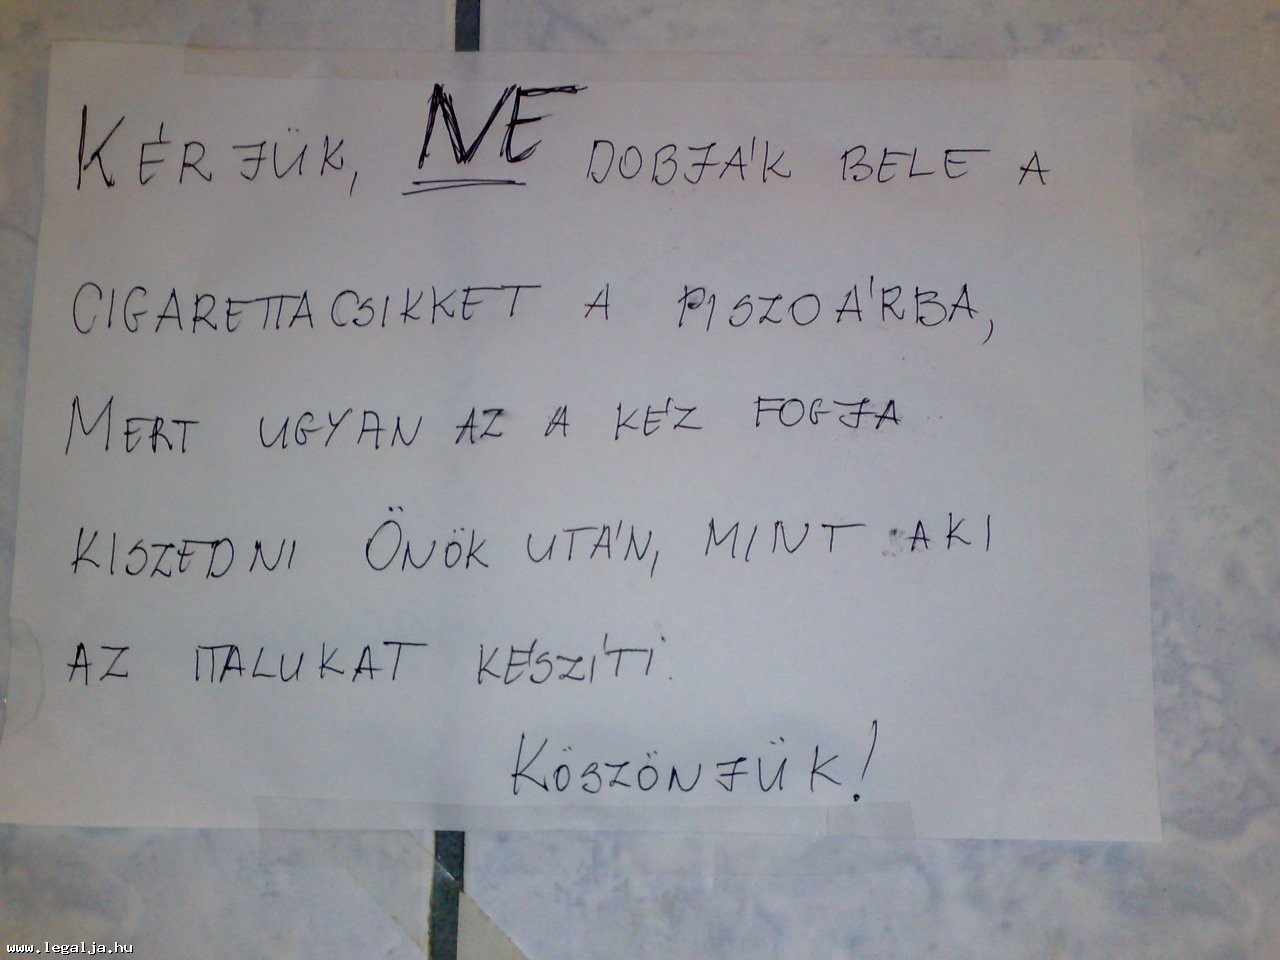 KÉRJÜK, NE DOBJÁK BELE A
CIGARETTACSIKKET A PISZOÁRBA,
MERT UGYAN AZ A KÉZ FOGJA
KISZEDNI ÖNÖK UTÁN, MINT AKI
AZ ITALUKAT KÉSZÍTI.
KÖSZÖNJÜK!
www.legalja.hu